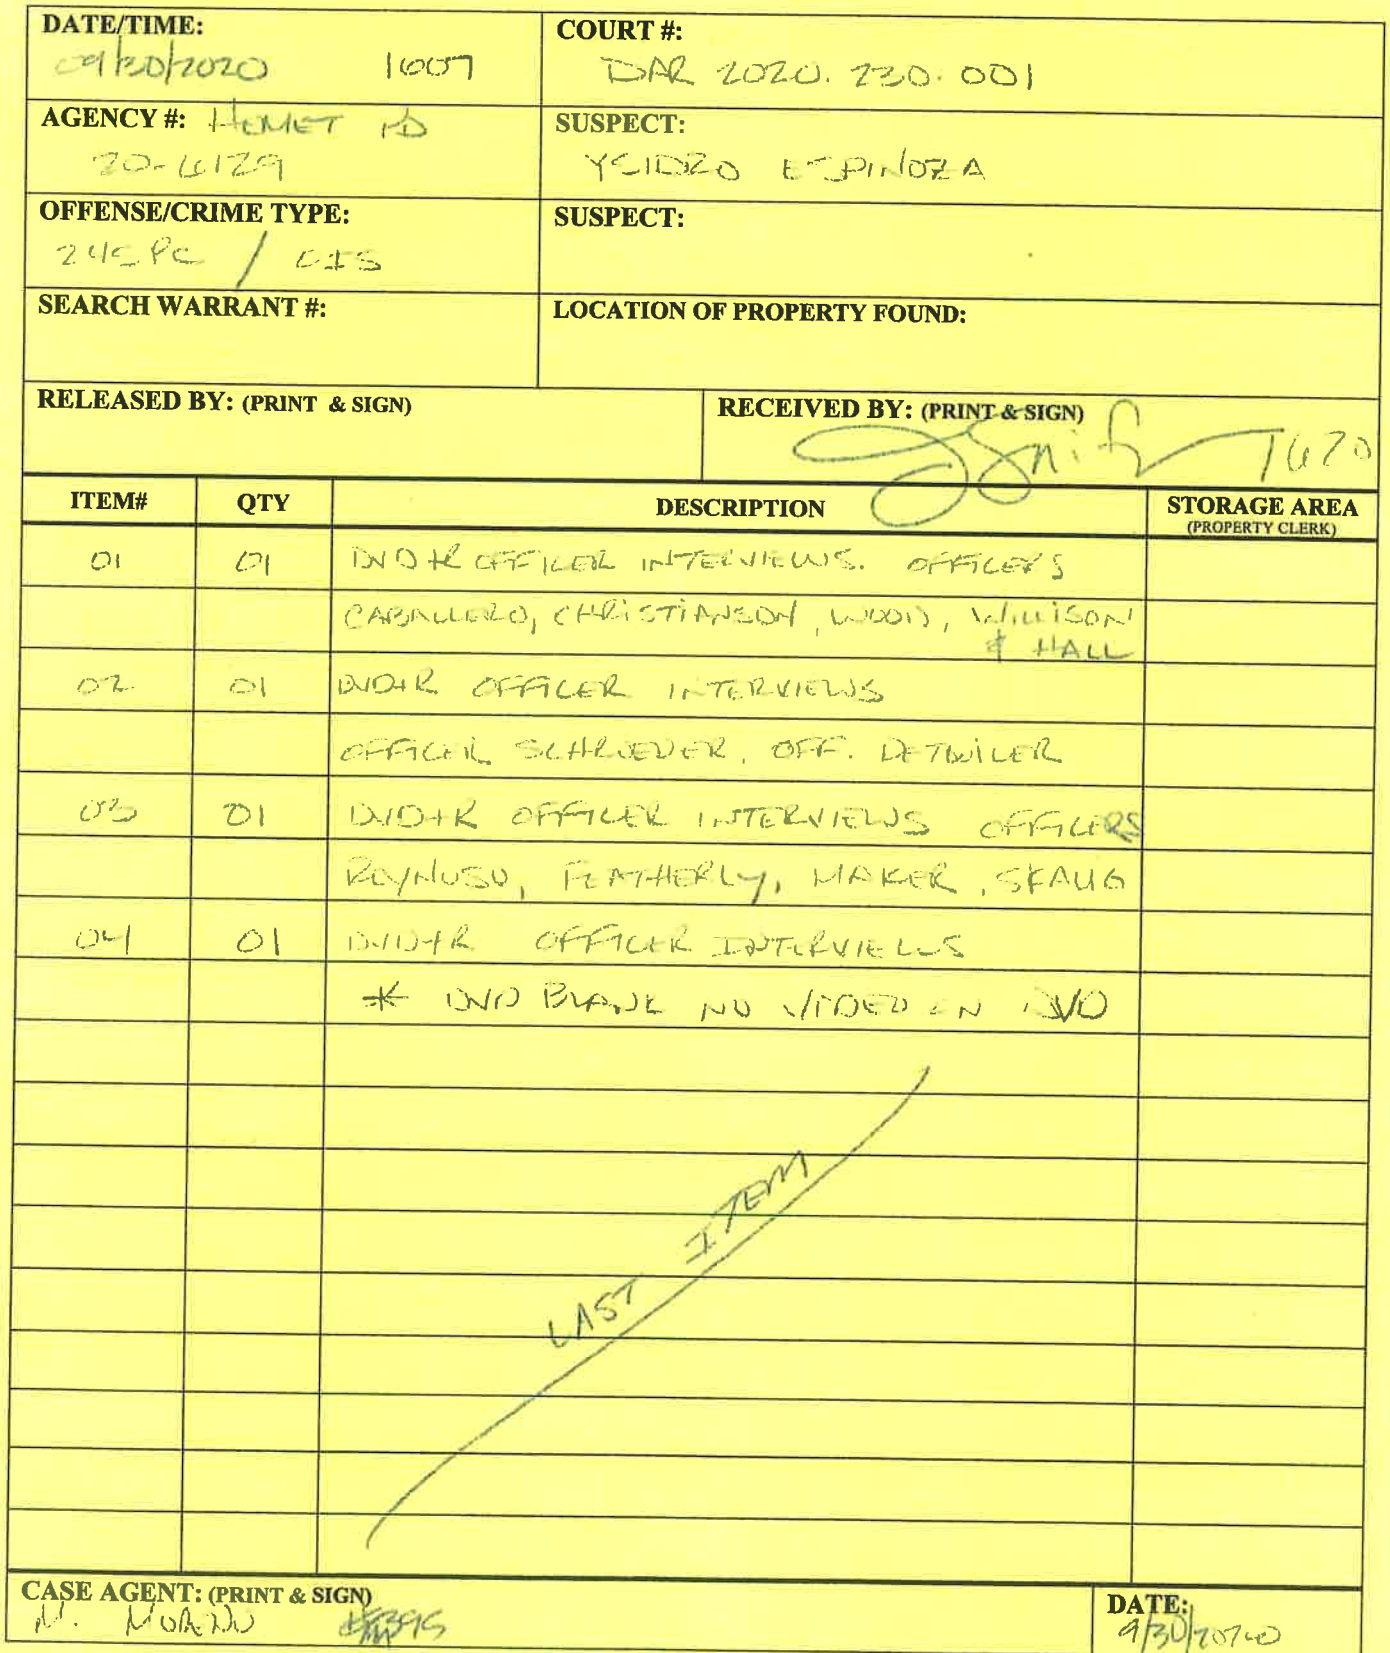 DATE/TIME:
09/30/2020 1607
COURT #:
DAR 2020.230.001
AGENCY #: HEMET PD
20-6129
SUSPECT:
YSIDRO ESPINOZA
OFFENSE/CRIME TYPE:
245 PC / OIS
SUSPECT:
SEARCH WARRANT #:
LOCATION OF PROPERTY FOUND:
RELEASED BY: (PRINT & SIGN)
RECEIVED BY: (PRINT & SIGN)
1620
ITEM# QTY DESCRIPTION STORAGE AREA
(PROPERTY CLERK)
01 01 DVD+R OFFICER INTERVIEWS. OFFICERS
CABALLERO, CHRISTIANSON, WOOD, WILLISON
& HALL
02 01 DVD+R OFFICER INTERVIEWS
OFFICER SCHROEDER, OFF. DETWILER
03 01 DVD+R OFFICER INTERVIEWS OFFICERS
REYNOSO, FEATHERLY, MAKER, SKAUG
04 01 DVD+R OFFICER INTERVIEWS
* DVD BLANK NO VIDEO ON DVD
LAST ITEM
CASE AGENT: (PRINT & SIGN)
M. MORENO
DATE:
9/30/2020